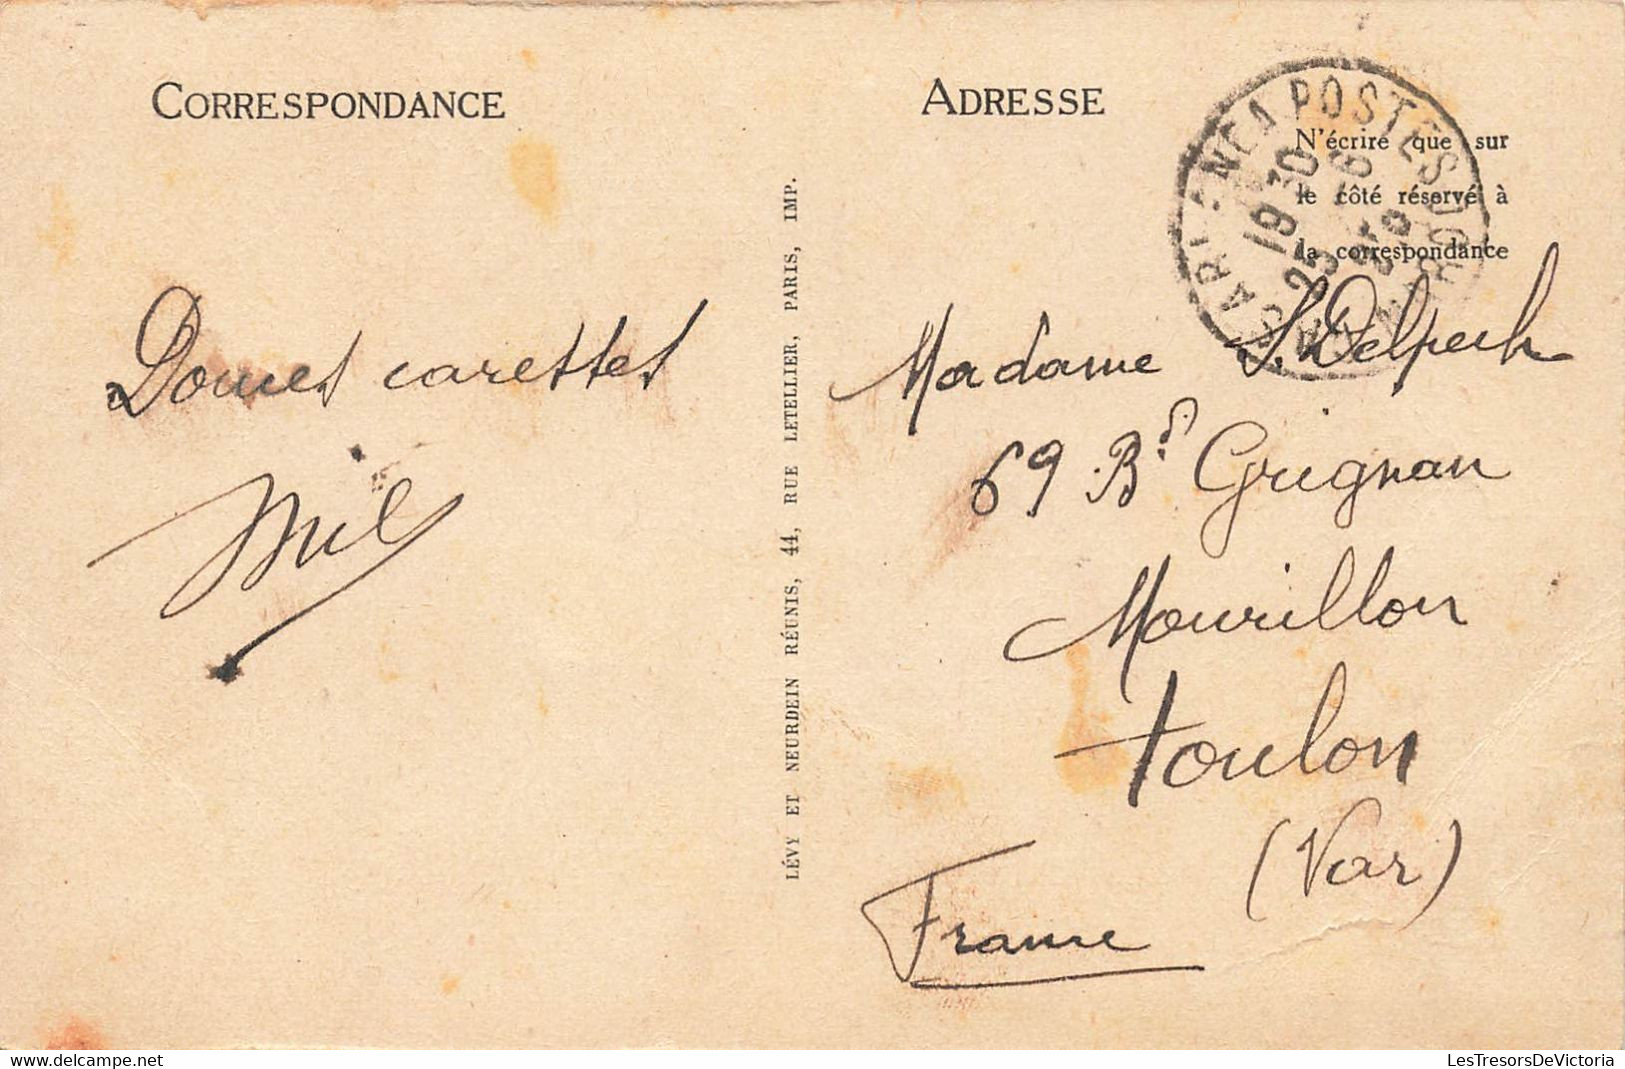 CORRESPONDANCE
Douces caresses
Mil
LÉVY ET NEURDEIN RÉUNIS, 44, RUE LETELLIER, PARIS, IMP.
ADRESSE
N'écrire que sur
le côté réservé à
la correspondance
POSTES
19 30
25
Madame S. Delpech
69 Bd Grignan
Mourillon
Toulon
(Var)
France
delcampe.net
LesTresorsDeVictoria